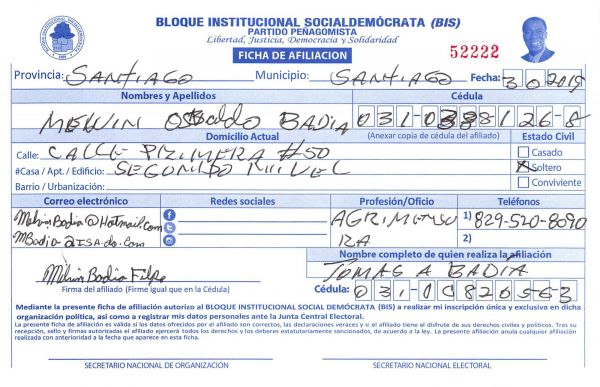 BLOQUE INSTITUCIONAL SOCIALDEMÓCRATA (BIS)
PARTIDO PEÑAGOMISTA
Libertad, Justicia, Democracia y Solidaridad
FICHA DE AFILIACION
52222
Provincia: SANTIAGO Municipio: SANTIAGO Fecha: 3 0 2015
Nombres y Apellidos Cédula
MELVIN OSBALDO BADIA 031-0388126-8
Domicilio Actual (Anexar copia de cédula del afiliado) Estado Civil
Calle: CALLE PRIMERA #50 Casado
#Casa / Apt. / Edificio: SEGUNDO NIVEL Soltero
Barrio / Urbanización: Conviviente
Correo electrónico Redes sociales Profesión/Oficio Teléfonos
MelvinBadia@Hotmail.com AGRIMENSU 1) 829-520-8090
MBadia@ISA.do.com RA 2)
Nombre completo de quien realiza la afiliación
Melvin Badia TOMAS A BADIA
Firma del afiliado (Firme igual que en la Cédula) Cédula: 031-0
Mediante la presente ficha de afiliación autorizo al BLOQUE INSTITUCIONAL SOCIAL DEMÓCRATA (BIS) a realizar mi inscripción única y exclusiva en dicha
organización política, así como a registrar mis datos personales ante la Junta Central Electoral.
La presente ficha de afiliación es válida si los datos ofrecidos por el afiliado son correctos, las declaraciones veraces y si el afiliado tiene el disfrute de sus derechos civiles y políticos. Tras su
recepción, sello y firmas autorizadas el afiliado ejercerá todos los derechos y los deberes estatutariamente sancionados, de acuerdo a la ley. La presente afiliación anula cualquier afiliación
realizada con anterioridad a la fecha que aparece en esta ficha.
SECRETARIO NACIONAL DE ORGANIZACIÓN SECRETARIO NACIONAL ELECTORAL